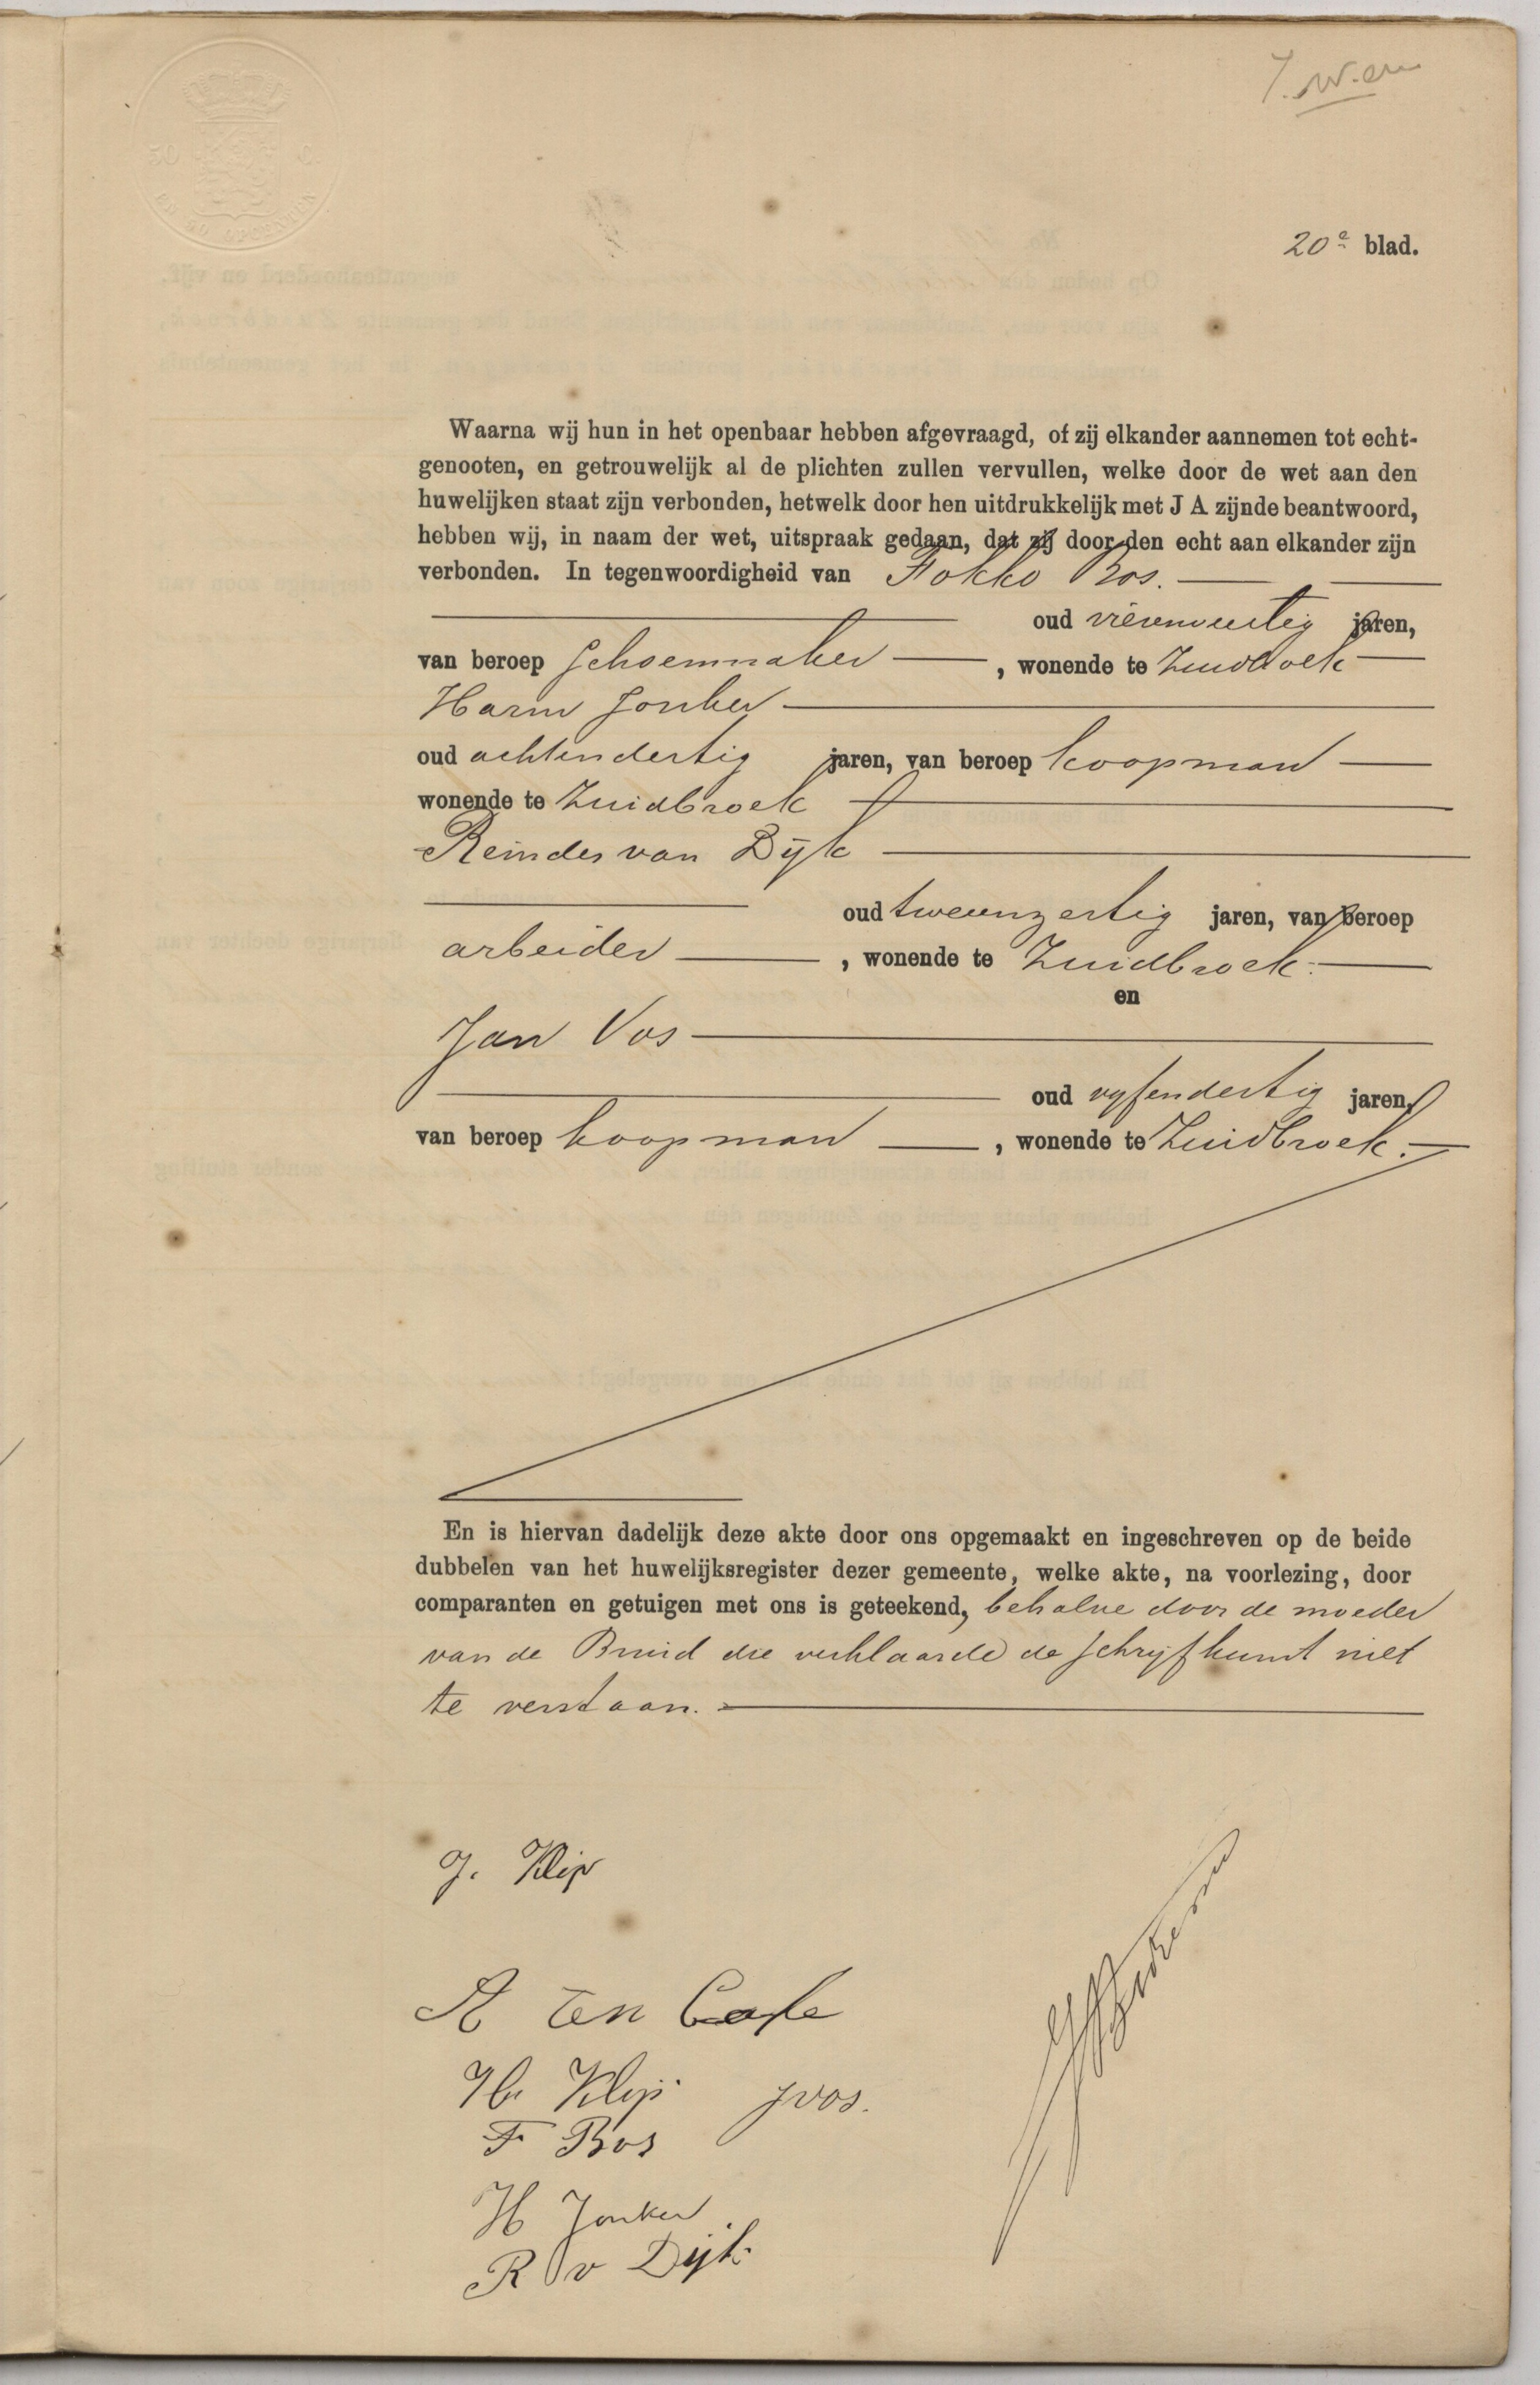 20e blad.
Waarna wij hun in het openbaar hebben afgevraagd, of zij elkander aannemen tot echt-
genooten, en getrouwelijk al de plichten zullen vervullen, welke door de wet aan den
huwelijken staat zijn verbonden, hetwelk door hen uitdrukkelijk met J A zijnde beantwoord,
hebben wij, in naam der wet, uitspraak gedaan, dat zij door den echt aan elkander zijn
verbonden. In tegenwoordigheid van Fokko Bos.
oud vierenveertig jaren,
van beroep Schoenmaker, wonende te Zuidbroek
Harm Jonker
oud achtendertig jaren, van beroep koopman
wonende te Zuidbroek
Reinder van Dijk
oud tweeenzestig jaren, van beroep
arbeider, wonende te Zuidbroek
en
Jan Vos
oud vijfendertig jaren,
van beroep koopman, wonende te Zuidbroek.
En is hiervan dadelijk deze akte door ons opgemaakt en ingeschreven op de beide
dubbelen van het huwelijksregister dezer gemeente, welke akte, na voorlezing, door
comparanten en getuigen met ons is geteekend, behalve door de moeder
van de Bruid die verklaarde de schrijfkunst niet
te verstaan.
J. Klip
A ten Cate
H. Klip JVos.
F Bos
H Jonker
R v Dijk